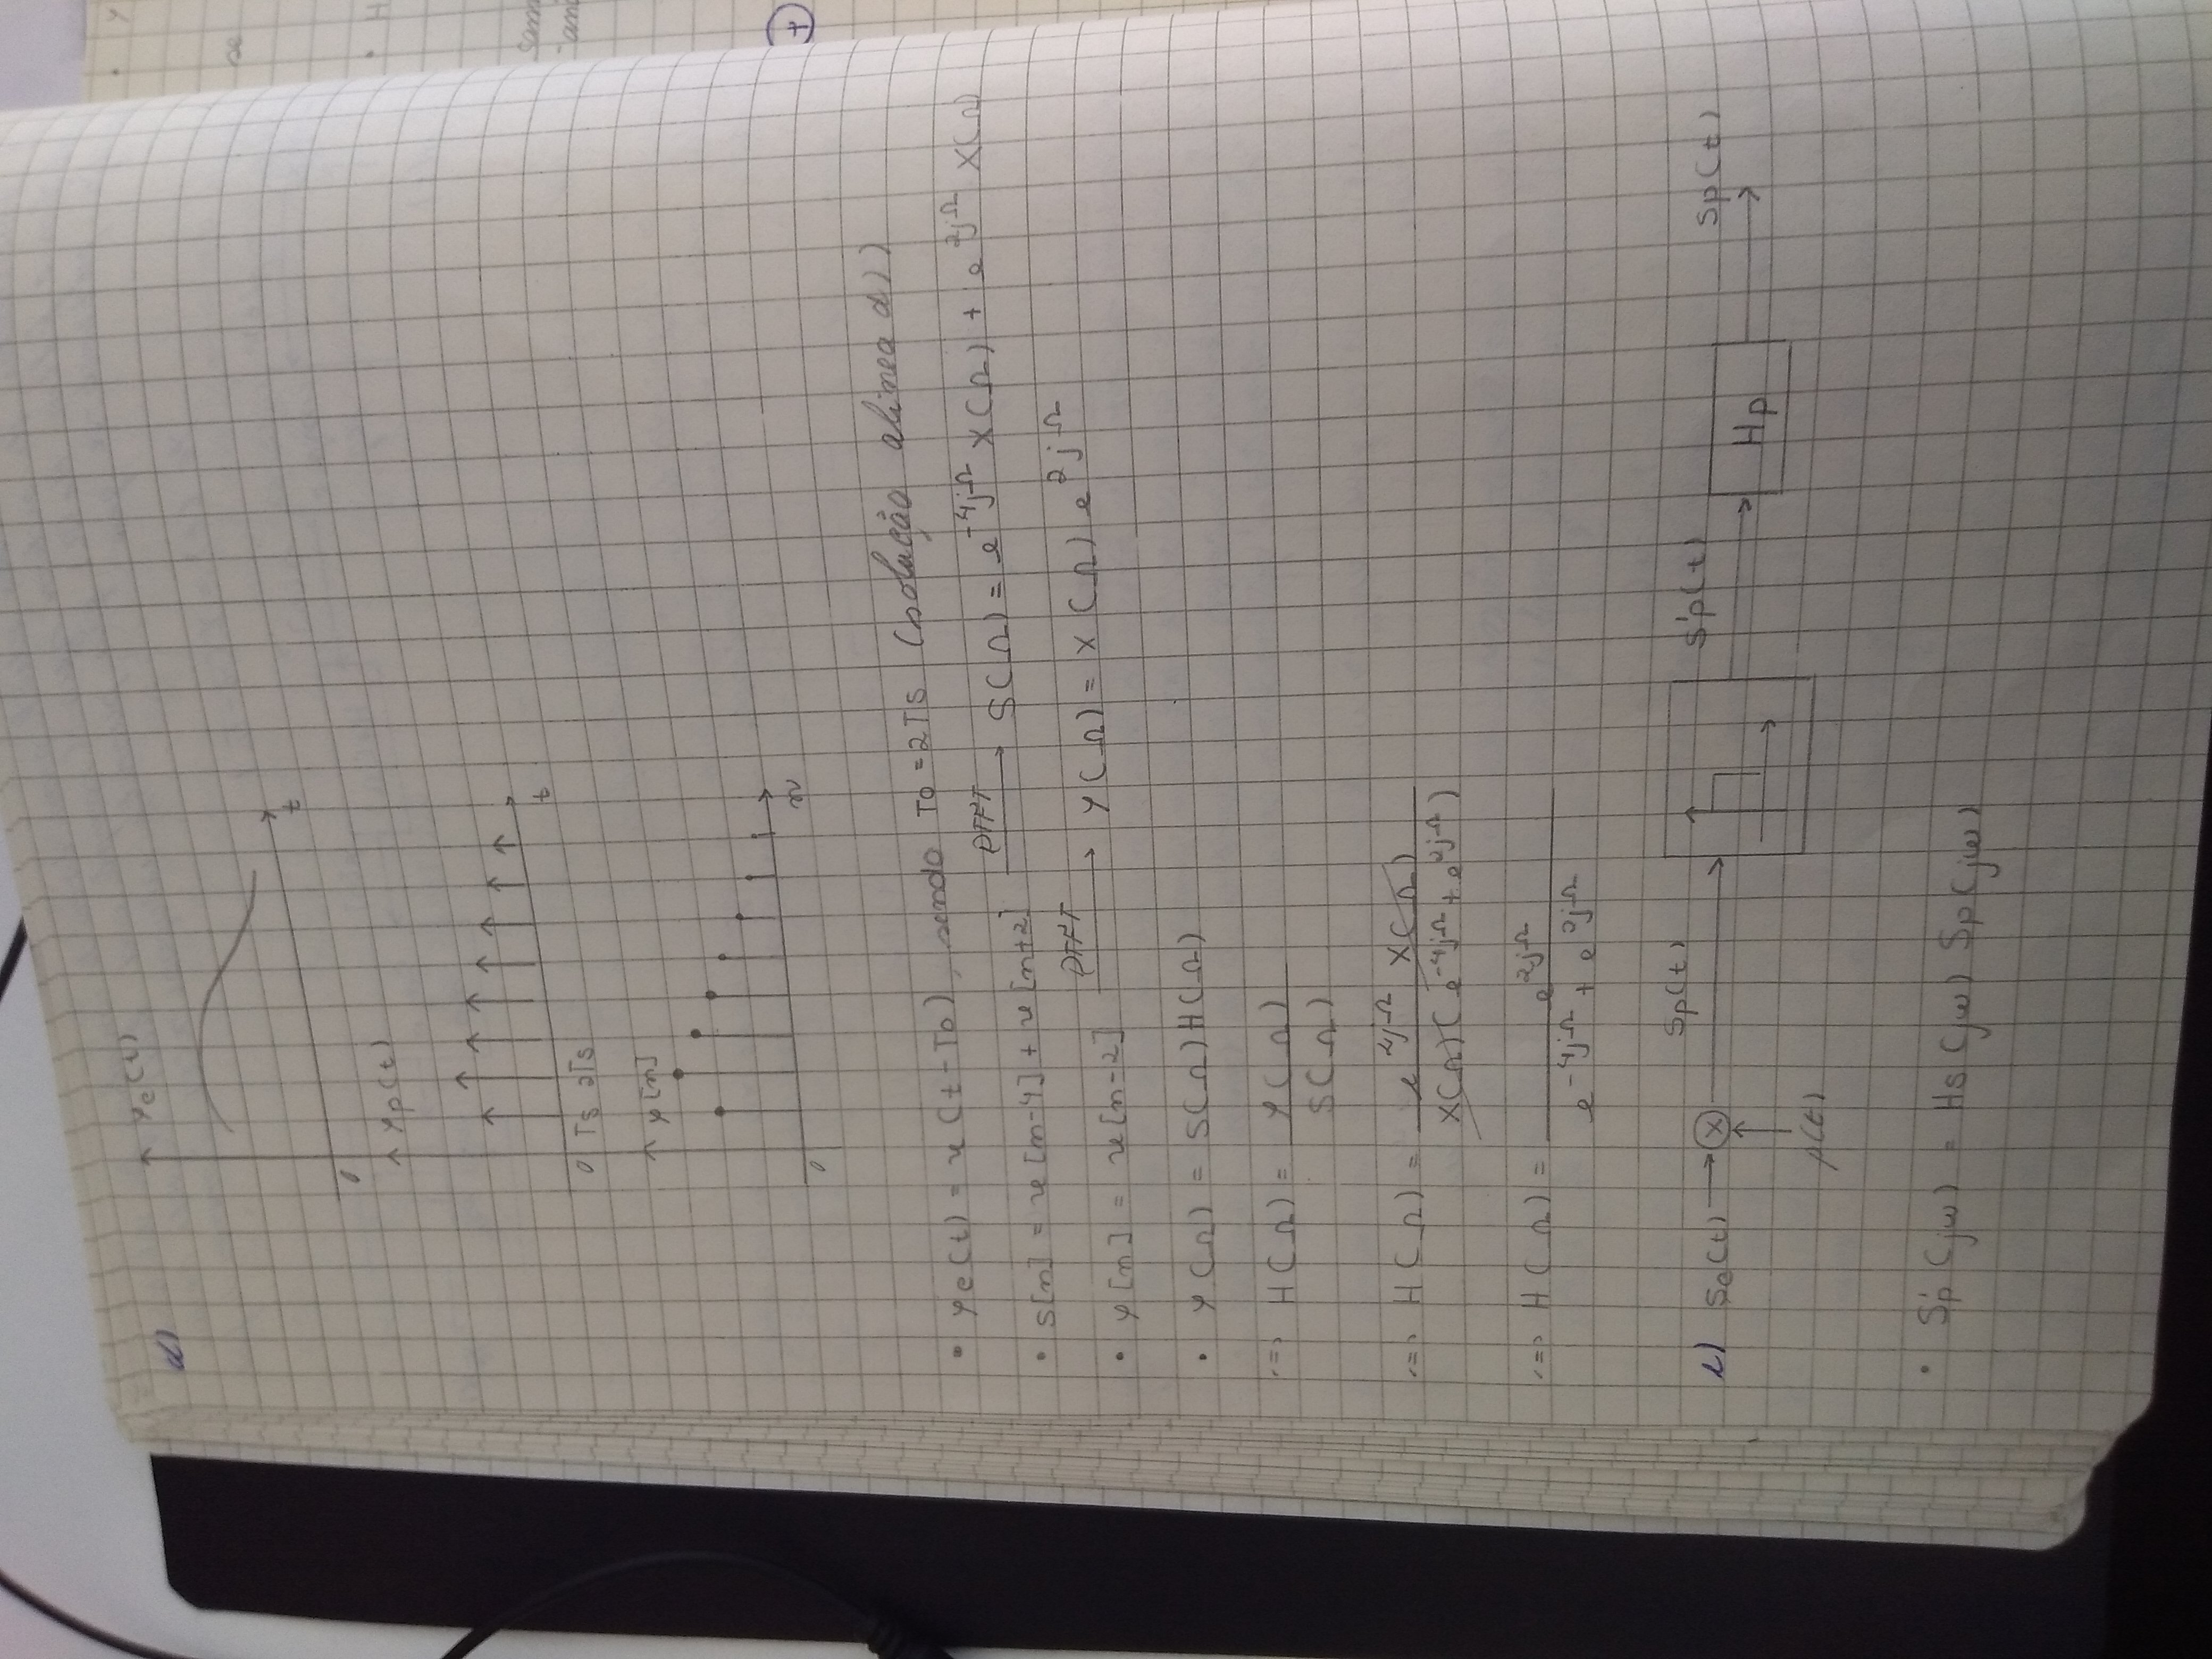 d)
yc(t)
t
0
yp(t)
t
0 Ts 2Ts
y[n]
n
0
• yc(t) = x(t-T0), sendo T0 = 2Ts (solução alínea d))
• s[n] = x[n-4] + x[n+2] DTFT→ S(Ω) = e^{-4jΩ} X(Ω) + e^{2jΩ} X(Ω)
• y[n] = x[n-2] DTFT→ Y(Ω) = X(Ω) e^{2jΩ}
• Y(Ω) = S(Ω) H(Ω)
<=> H(Ω) = Y(Ω) / S(Ω)
<=> H(Ω) = e^{2jΩ} X(Ω) / X(Ω)(e^{-4jΩ} + e^{2jΩ})
<=> H(Ω) = e^{2jΩ} / e^{-4jΩ} + e^{2jΩ}
e) Sc(t) → × → Sp(t) → S'p(t) → Hp → Sp(t)
p(t)
• S'p(jω) = Hs(jω) Sp(jω)
se
H
+